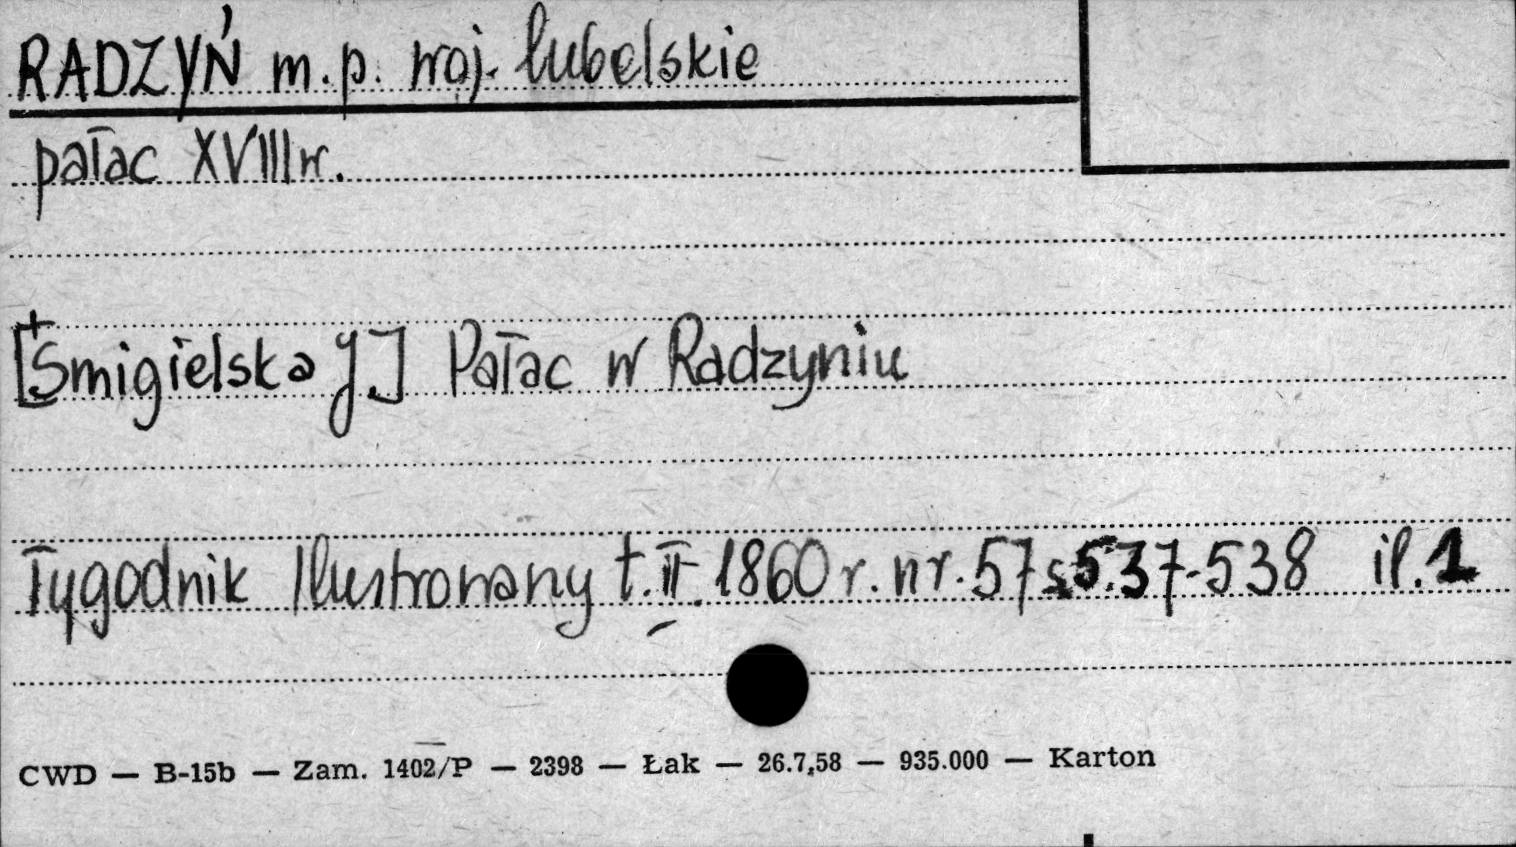 RADZYŃ m.p. woj. lubelskie
pałac XVIII w.
[Śmigielska J.] Pałac w Radzyniu
Tygodnik Ilustrowany t. II. 1860 r. nr. 57 s. 537-538 il. 1
CWD — B-15b — Zam. 1402/P — 2398 — Łak — 26.7.58 — 935.000 — Karton